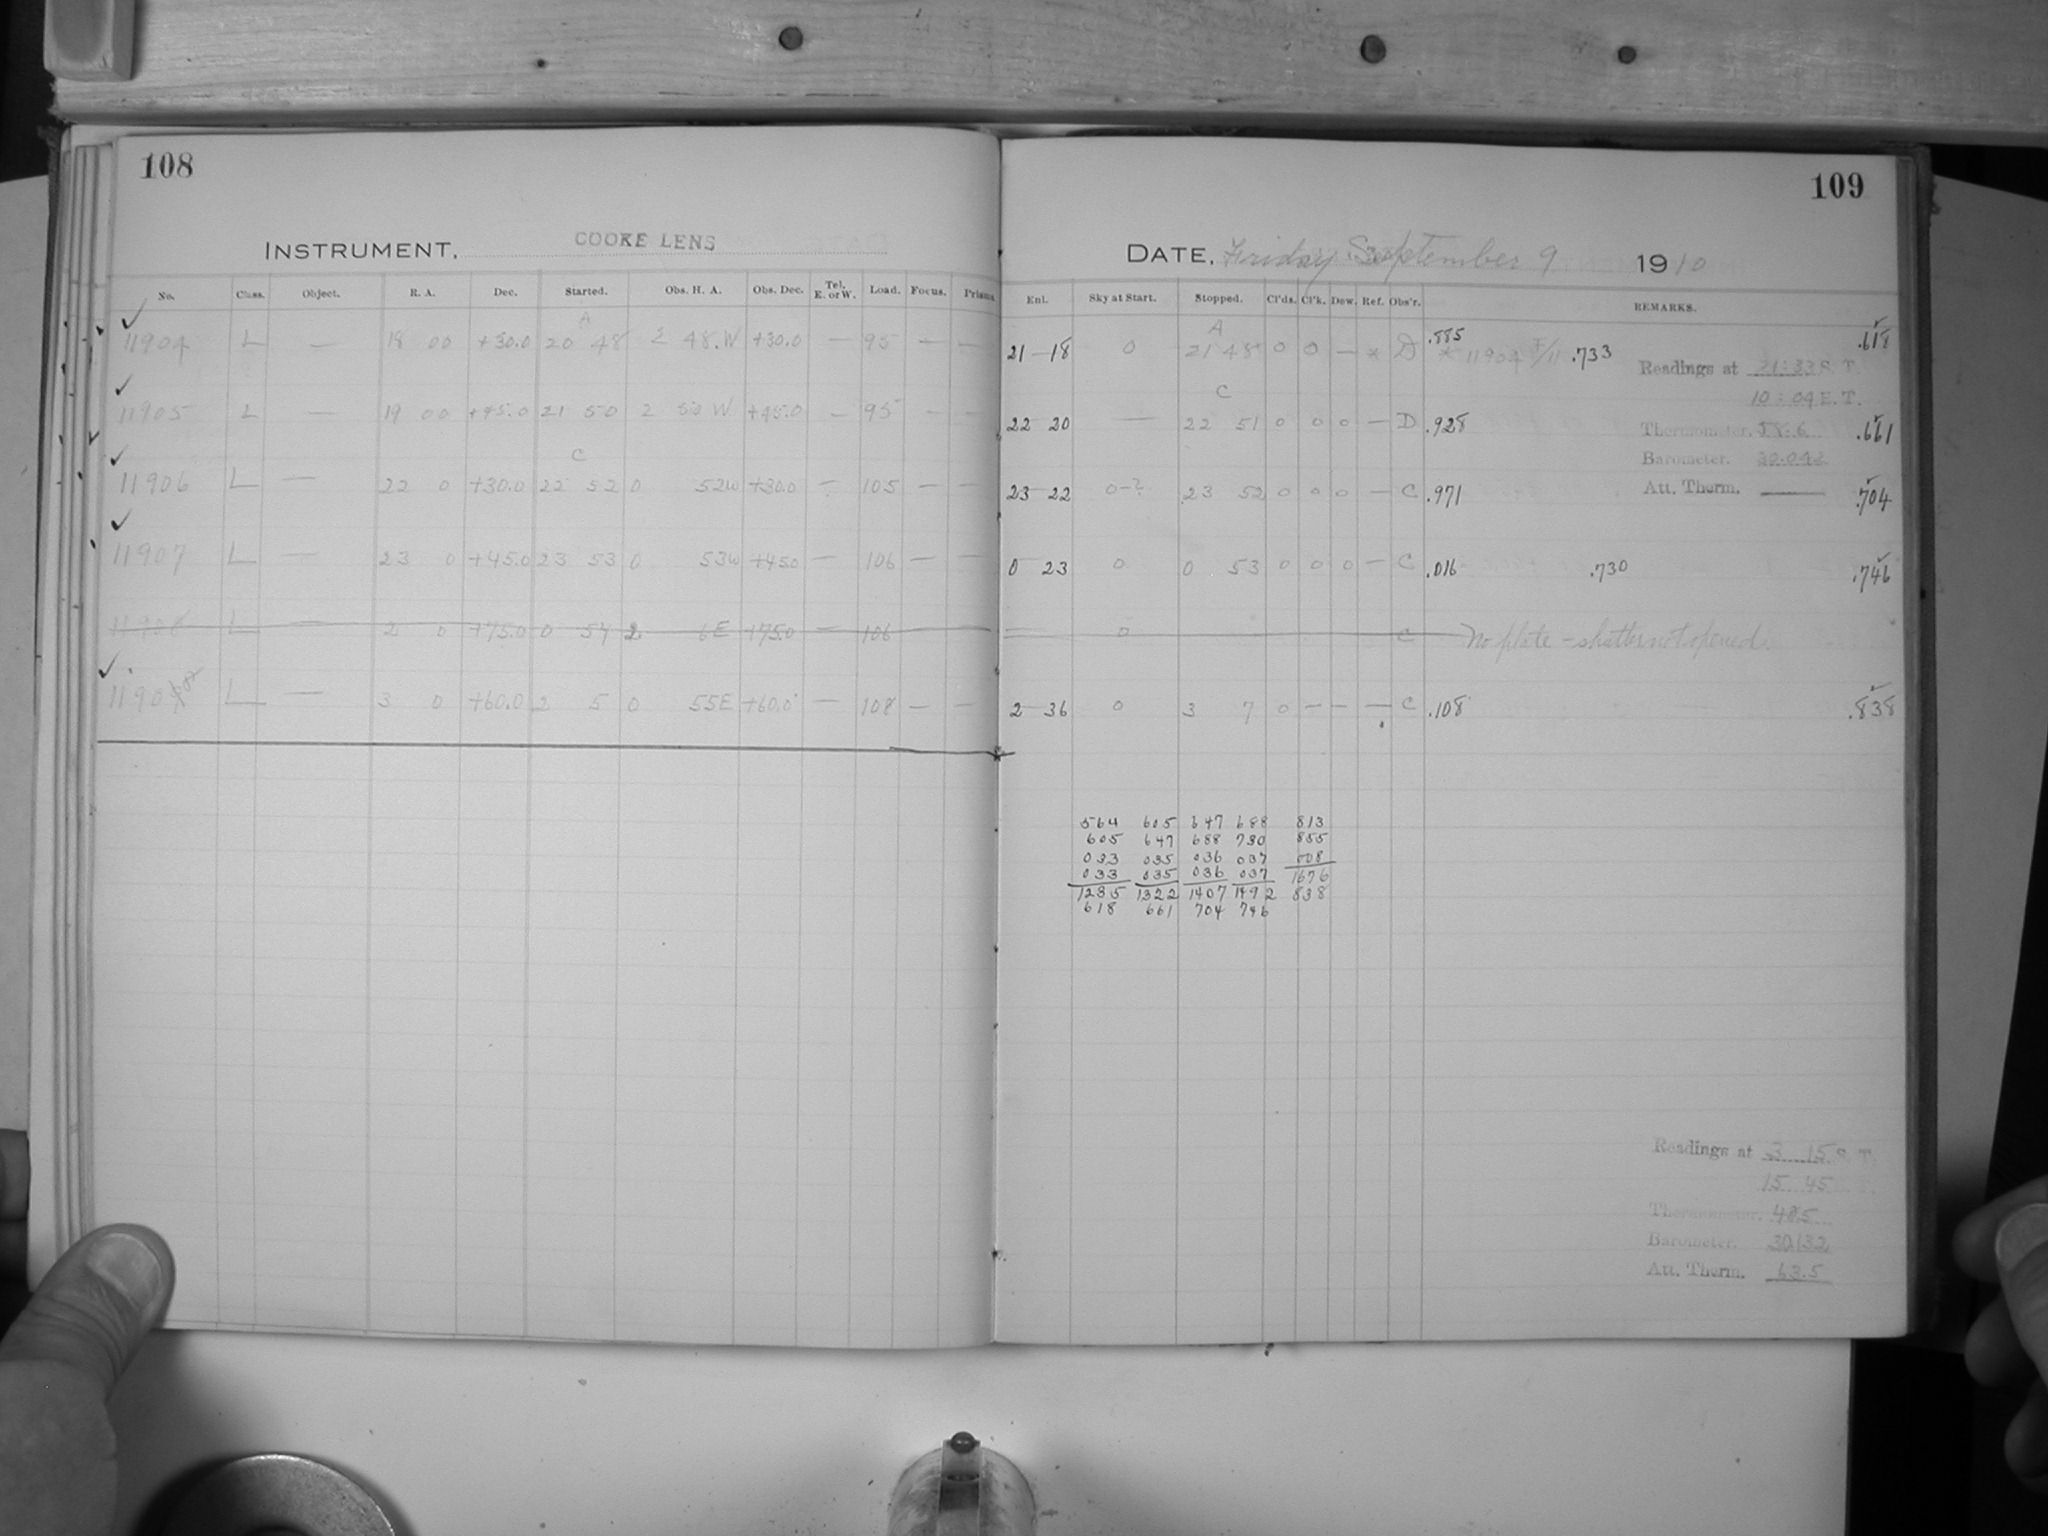 108
INSTRUMENT, COOKE LENS
No. Class. Object. R. A. Dec. Started. Obs. H. A. Obs. Dec. Tel. E. or W. Load. Focus. Prisms
A
11904 L — 18 00 +30.0 20 48 2 48.W +30.0 — 95 — —
11905 L — 19 00 +45.0 21 50 2 50 W +45.0 — 95 — —
C
11906 L — 22 0 +30.0 22 52 0 52W +30.0 — 105 — —
11907 L — 23 0 +45.0 23 53 0 53W +45.0 — 106 — —
L 2 0 +75.0 0 54 2 6E +75.0 — 106 —
L — 3 0 +60.0 2 5 0 55E +60.0 — 108 — —
109
DATE, Friday September 9 1910
Enl. Sky at Start. Stopped. Cl'ds. Cl'k. Dew. Ref. Obs'r. REMARKS.
A
21 18 0 21 48 0 0 — * D .885 * 11904 F/11 .733 .618
Readings at 21:33 S. T.
10:04 E. T.
C
22 20 — 22 51 0 0 0 — D .928 Thermometer. 58.6 .661
Barometer. 30.042
23 22 0-? 23 52 0 0 0 — C .971 Att. Therm. — .704
0 23 0 0 53 0 0 0 — C .016 .730 .746
0 C No plate - shutter not opened.
2 36 0 3 7 0 — — — C .108 .838
564 605 647 688 813
605 647 688 730 855
033 035 036 037 008
033 035 036 037 1676
1235 1322 1407 1492 838
618 661 704 746
Readings at 3 15 S. T.
15 45
Thermometer.
Barometer. 30.132
Att. Therm. 63.5